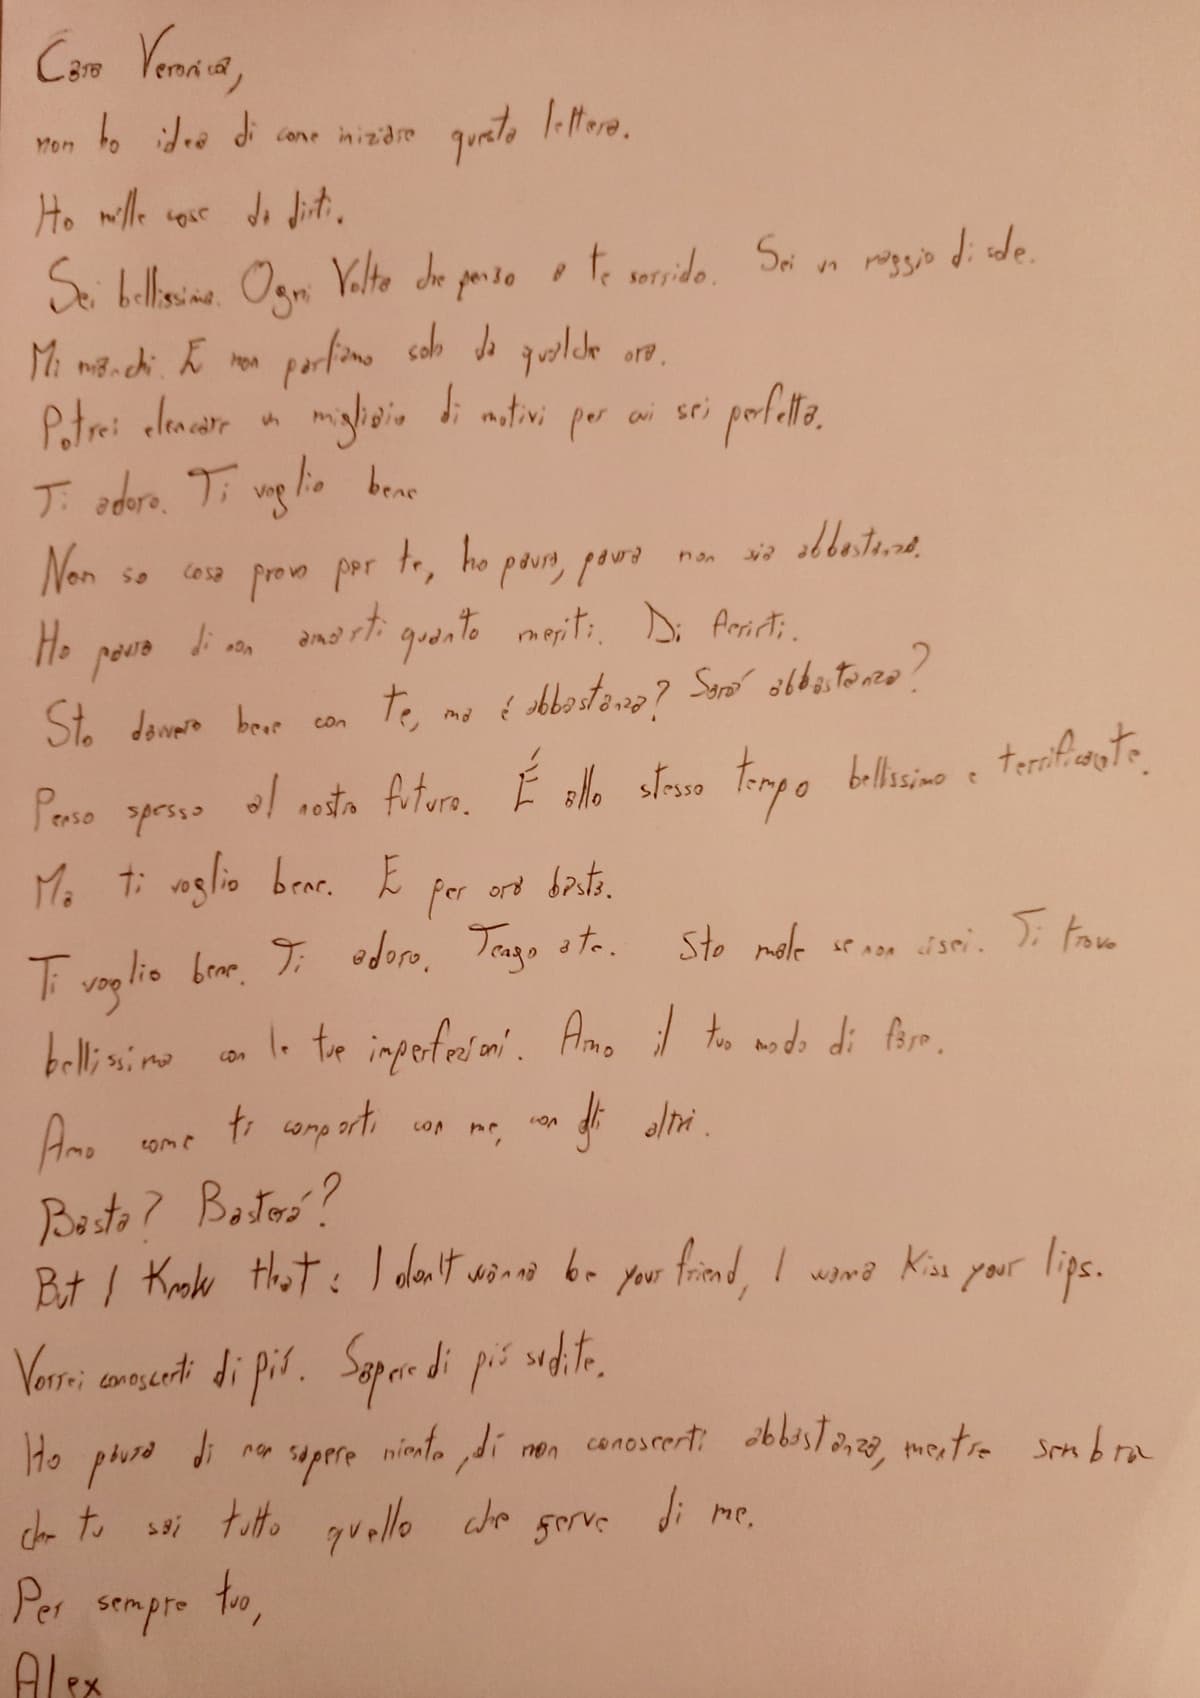 Cara Veronica,
non ho idea di come iniziare questa lettera.
Ho mille cose da dirti.
Sei bellissima. Ogni Volta che penso a te sorrido. Sei un raggio di sole.
Mi manchi. E non parliamo solo da qualche ora.
Potrei elencare un migliaio di motivi per cui sei perfetta.
Ti adoro. Ti voglio bene
Non so cosa provo per te, ho paura, paura non sia abbastanza.
Ho paura di non amarti quanto meriti. Di ferirti.
Sto davvero bene con te, ma é abbastanza? Sará abbastanza?
Penso spesso al nostro futuro. É allo stesso tempo bellissimo e terrificante.
Ma ti voglio bene. E per ora basta.
Ti voglio bene. Ti adoro. Tengo a te. Sto male se non ci sei. Ti trovo
bellissima con le tue imperfezioni. Amo il tuo modo di fare.
Amo come ti comporti con me, con gli altri.
Basta? Basterá?
But I Know that: I don't wanna be your friend, I wanna Kiss your lips.
Vorrei conoscerti di piú. Sapere di piú su di te.
Ho paura di non sapere niente, di non conoscerti abbastanza, mentre sembra
che tu sai tutto quello che serve di me.
Per sempre tuo,
Alex